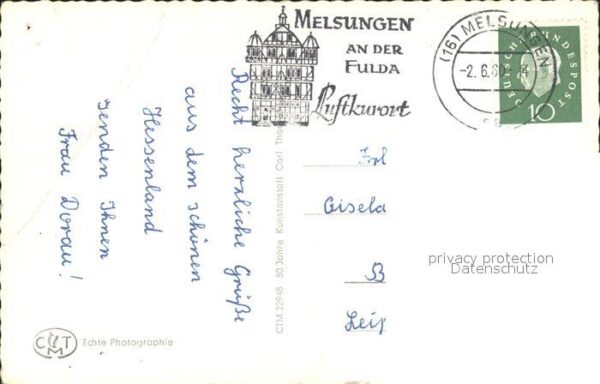 MELSUNGEN
AN DER
FULDA
Luftkurort
(16) MELSUNGEN
-2.6.60-14
DEUTSCHE BUNDESPOST
10
Recht herzliche Grüße
aus dem schönen
Hessenland
senden Ihnen
Frau Dorau!
CTM 22948 80 Jahre Kunstanstalt Carl
Frl
Gisela
B
Leip
privacy protection
Datenschutz
CTM
Echte Photographie